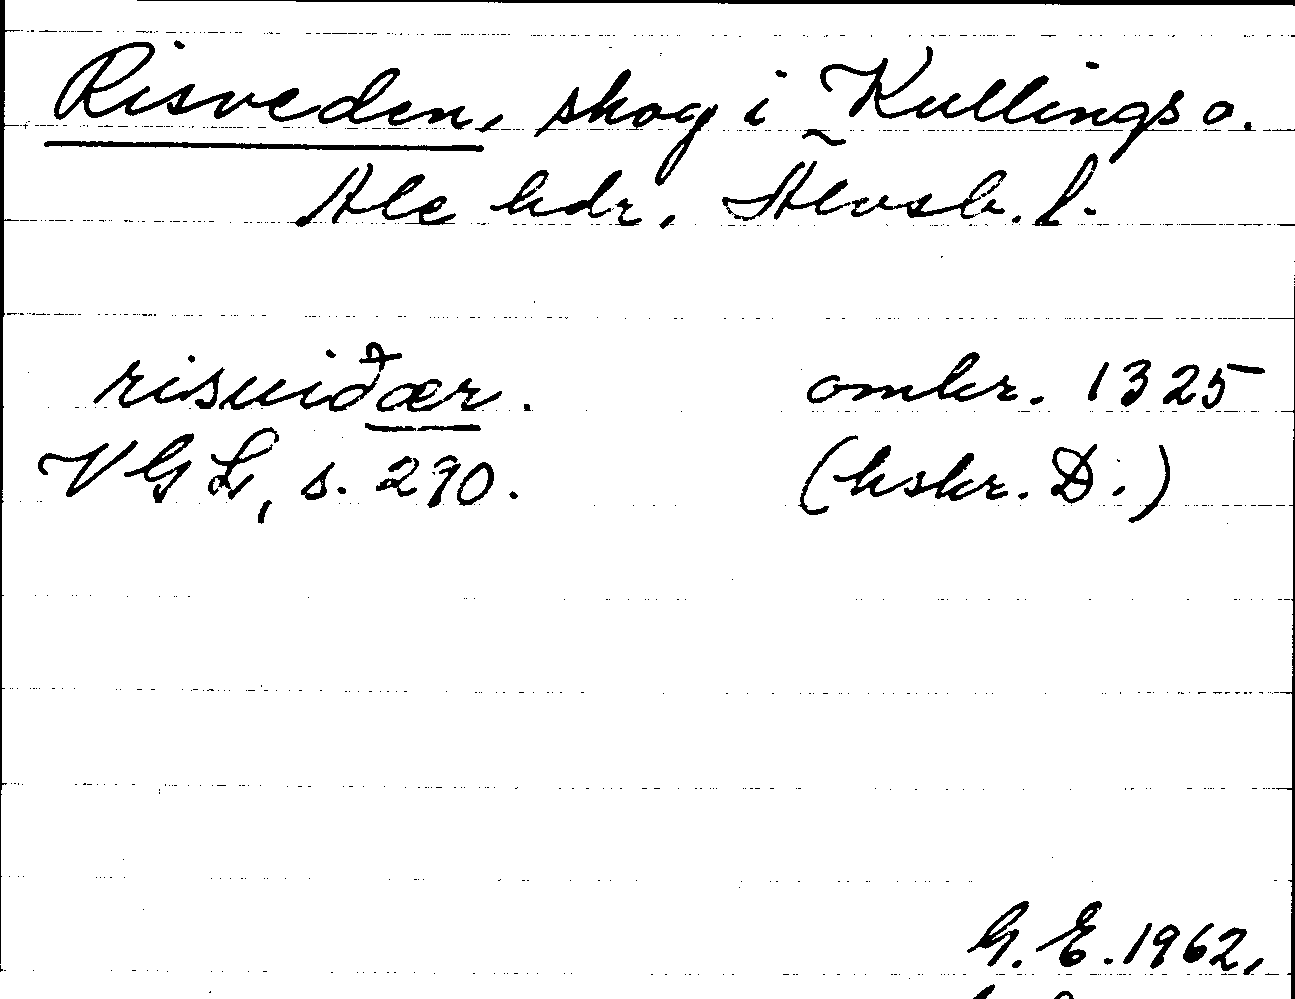 Risveden, skog i Kullings o.
Ale hdr, Älvsb. l.
risuiðær. omkr. 1325
VGL, s. 290. (hskr. D.)
G. E. 1962,